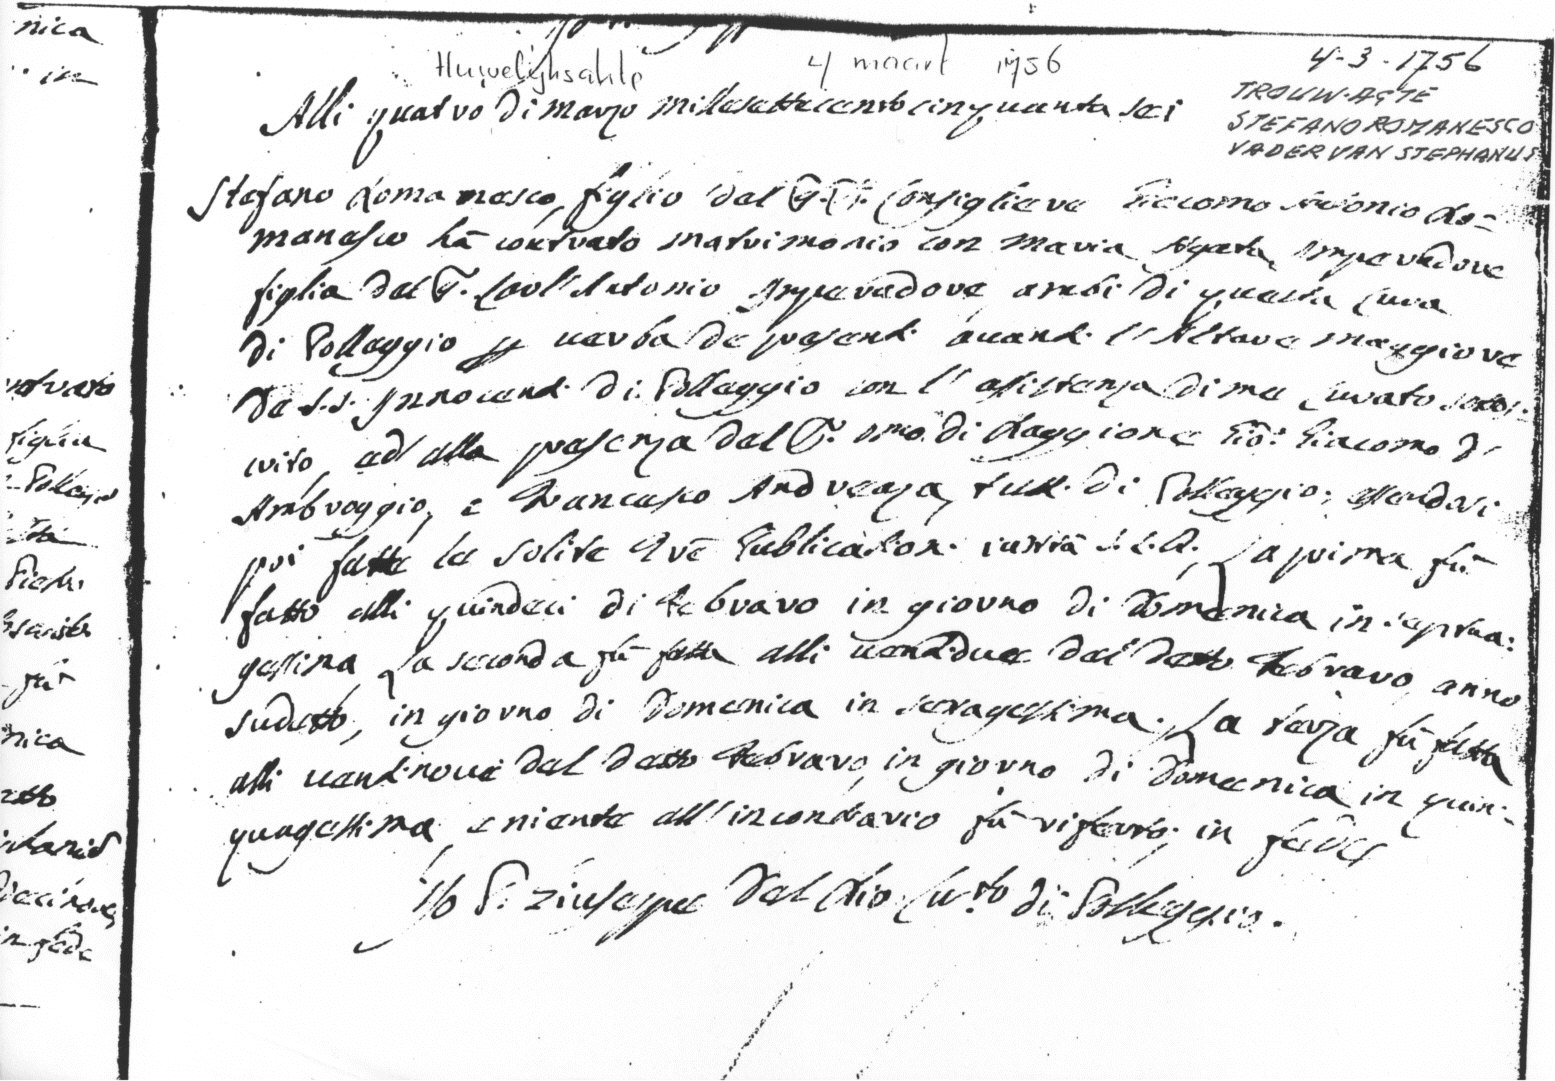 nica
in
Huwelijksakte 4 maart 1756
4-3-1756
TROUW-ACTE
STEFANO ROMANESCO
VADER VAN STEPHANUS
Alli quatro di marzo millesettecento cinquanta sei
Stefano Romanesco, figlio del Consigliere Giacomo Antonio Ro=
manesco hà contrato matrimonio con Maria Agata Imperadore
figlia del S. Carl'Antonio Imperadore ambi di questa Cura
di Pollaggio verba de presenti auanti l'Altare maggiore
de S.S. Innocenti di Pollaggio con l'assistenza di me Curato sottos.
crito, ed alla presenza del di Raggione Gio: Giacomo d'
Ambroggio, e Francesco Andreaza, tutti di Polleggio; essendosi
poi fatte le solite trè Publicationi iuxtà S.C.R. La prima fù
fatto alli quindeci di Febraro in giorno di Domenica in septua:
gessima La seconda fù fatta alli uentidue del detto Febraro anno
sudetto, in giorno di Domenica in sexagessima. La terza fù fatta
alli uentinoue del detto Febraro, in giorno di Domenica in quin=
quagessima, e niente all'incontrario fù riferto; in fede
Io P. Giuseppe Del Rio Cu.to di Polleggio.
figlia
Pollegio
fù
nica
in fede